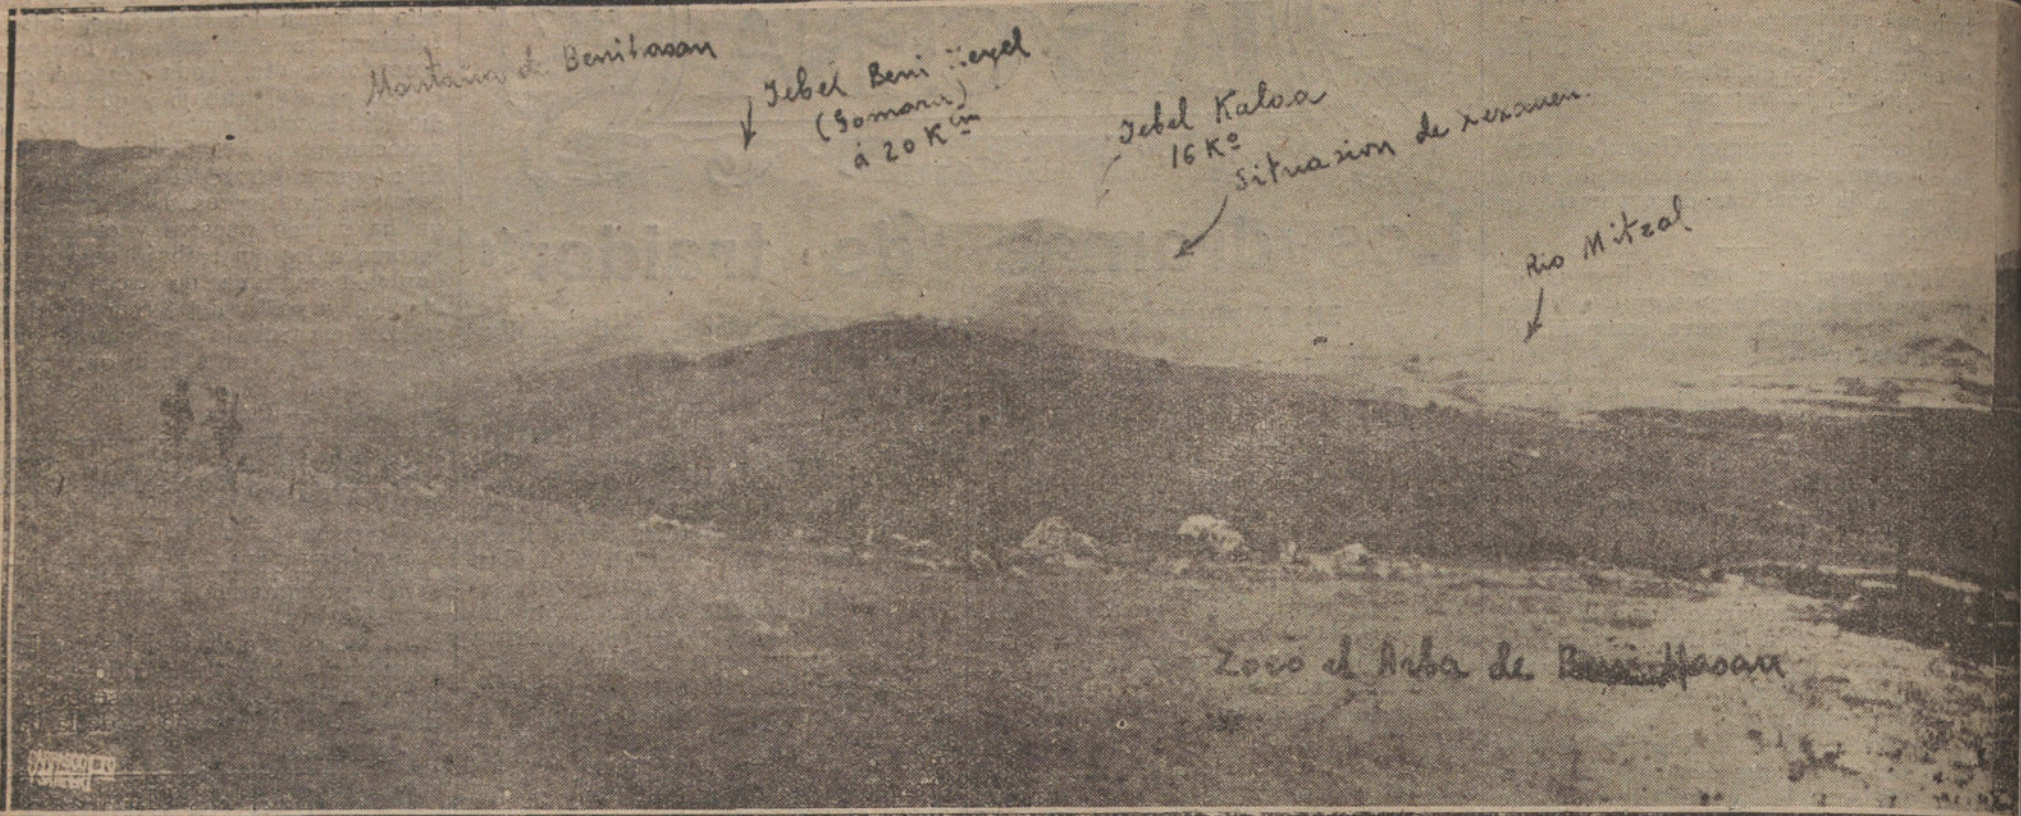 Montaña de Benihasan
Jebel Beni
(Gomara)
á 20 Km
Jebel Kalaa
16 Kº
situasion de xexauen.
Rio Mitzal
Zoco el Arba de Beni-Hasan